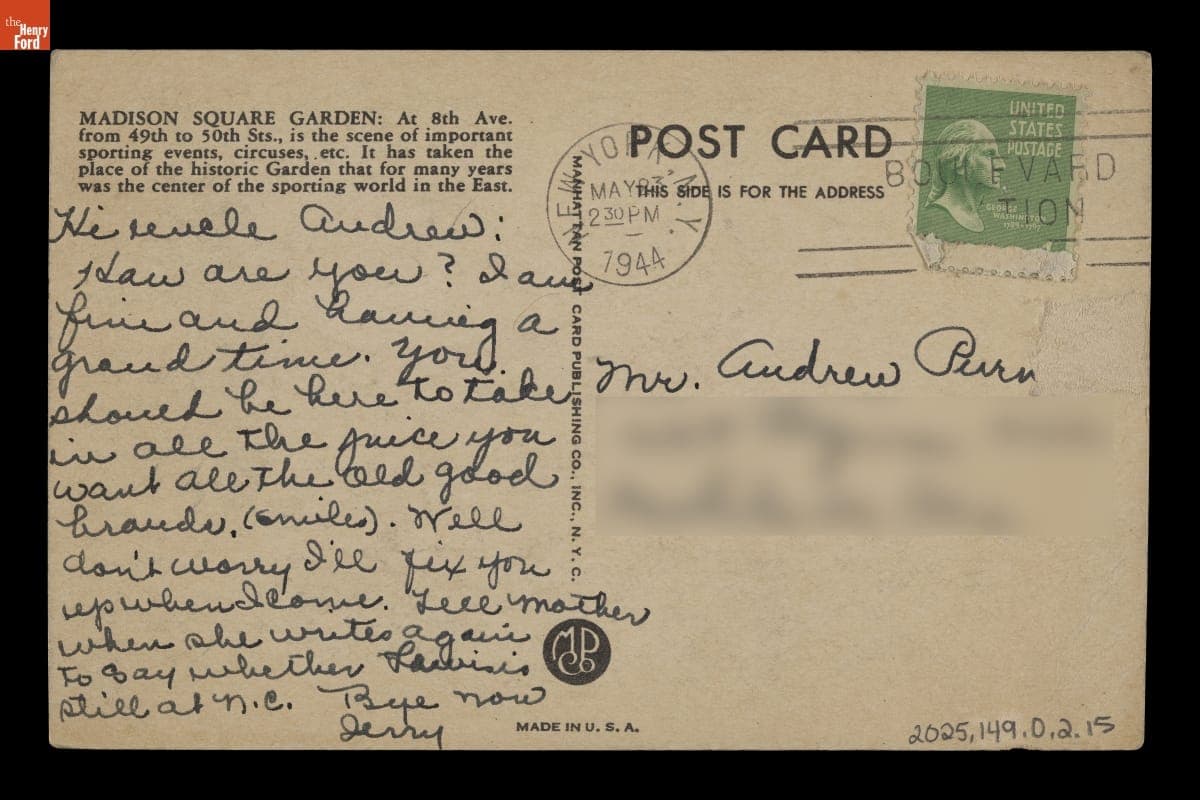 the
Henry
Ford
MADISON SQUARE GARDEN: At 8th Ave.
from 49th to 50th Sts., is the scene of important
sporting events, circuses, etc. It has taken the
place of the historic Garden that for many years
was the center of the sporting world in the East.
Hi uncle Andrew:
How are you? I am
fine and having a
grand time. You
should be here to take
in all the juice you
want all the old good
brands. (smiles). Well
don't worry I'll fix you
up when I come. Tell mother
when she writes again
to say whether is
still at N.C. Bye now
Jerry
MANHATTAN POST CARD PUBLISHING CO., INC., N. Y. C.
MPC
MADE IN U. S. A.
POST CARD
THIS SIDE IS FOR THE ADDRESS
NEW YORK, N.Y.
MAY 23
2 30 PM
1944
BOULEVARD
TION
UNITED
STATES
POSTAGE
GEORGE
WASHINGTON
1789-1797
Mr. Andrew
2025.149.0.2.15